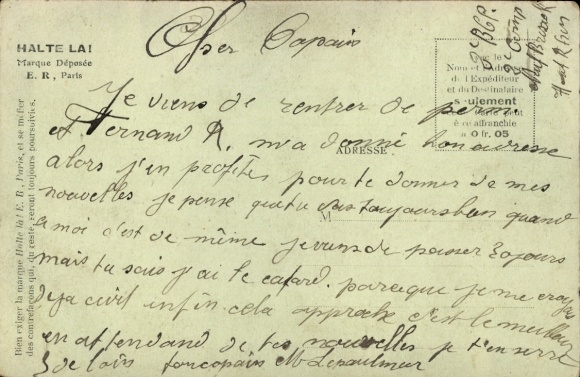 HALTE LA!
Marque Déposée
E. R., Paris
Bien exiger la marque Halte la! E. R., Paris, et se méfier
des contrefaçons qui, du reste, seront toujours poursuivies.
le
Nom et l'Adresse
de l'Expéditeur
et du Destinataire
seulement
peut
être affranchie
à 0 fr. 05
ADRESSE
M
2e Comp
Cher Copain
Je viens de rentrer de perm
et Fernand R. m'a donné ton adresse
alors j'en profites pour te donner de mes
nouvelles je pense que tu vas toujours bien quand
a moi c'est de même je viens de passer 30 jours
mais tu sais j'ai le cafard. parce que je me croyais
deja civil enfin cela approche c'est le meilleur
en attendand de tes nouvelles je t'en serre
5 de loin ton copain